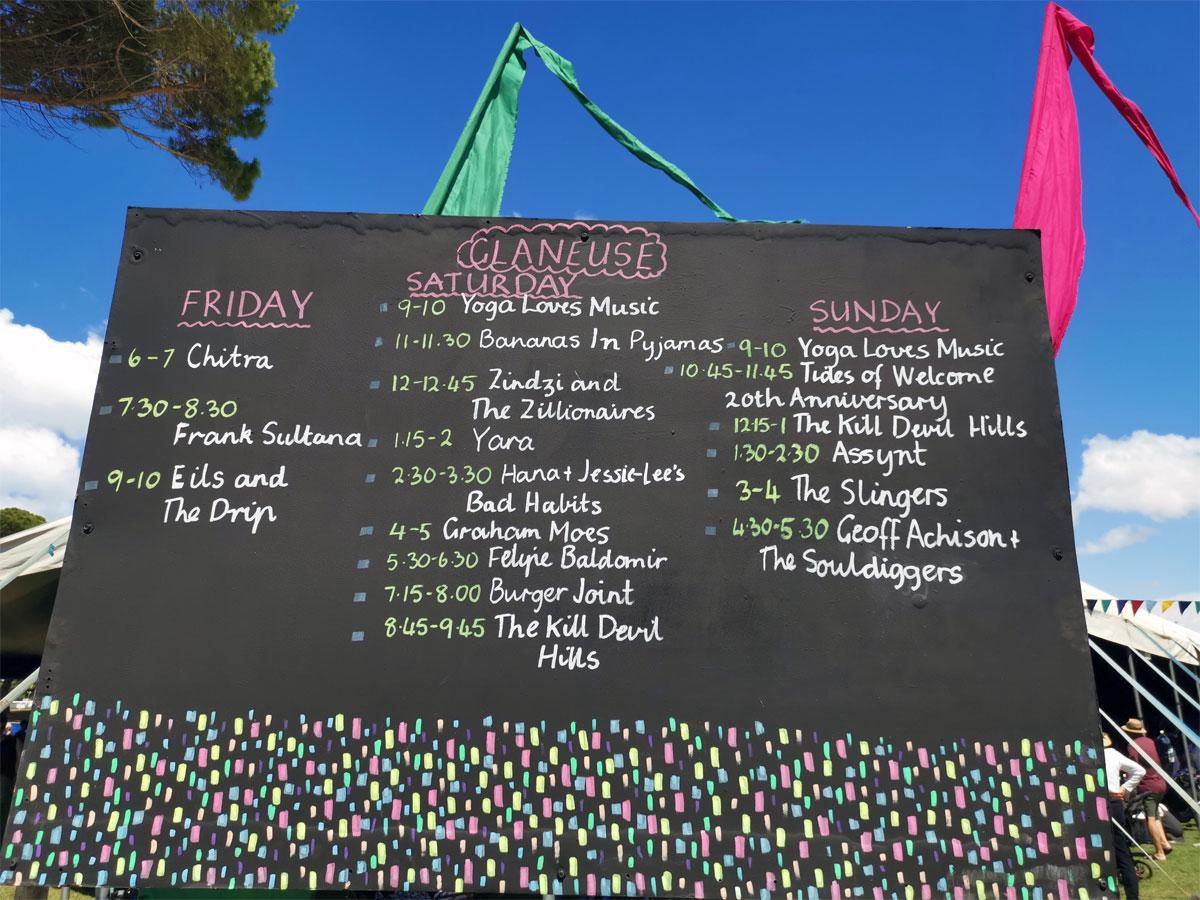 GLANEUSE
FRIDAY
6-7 Chitra
7.30-8.30
Frank Sultana
9-10 Eils and
The Drip
SATURDAY
9-10 Yoga Loves Music
11-11.30 Bananas In Pyjamas
12-12.45 Zindzi and
The Zillionaires
1.15-2 Yara
2.30-3.30 Hana + Jessie-Lee's
Bad Habits
4-5 Graham Moes
5.30-6.30 Felipe Baldomir
7.15-8.00 Burger Joint
8.45-9.45 The Kill Devil
Hills
SUNDAY
9-10 Yoga Loves Music
10.45-11.45 Tides of Welcome
20th Anniversary
12.15-1 The Kill Devil Hills
1.30-2.30 Assynt
3-4 The Slingers
4.30-5.30 Geoff Achison +
The Souldiggers